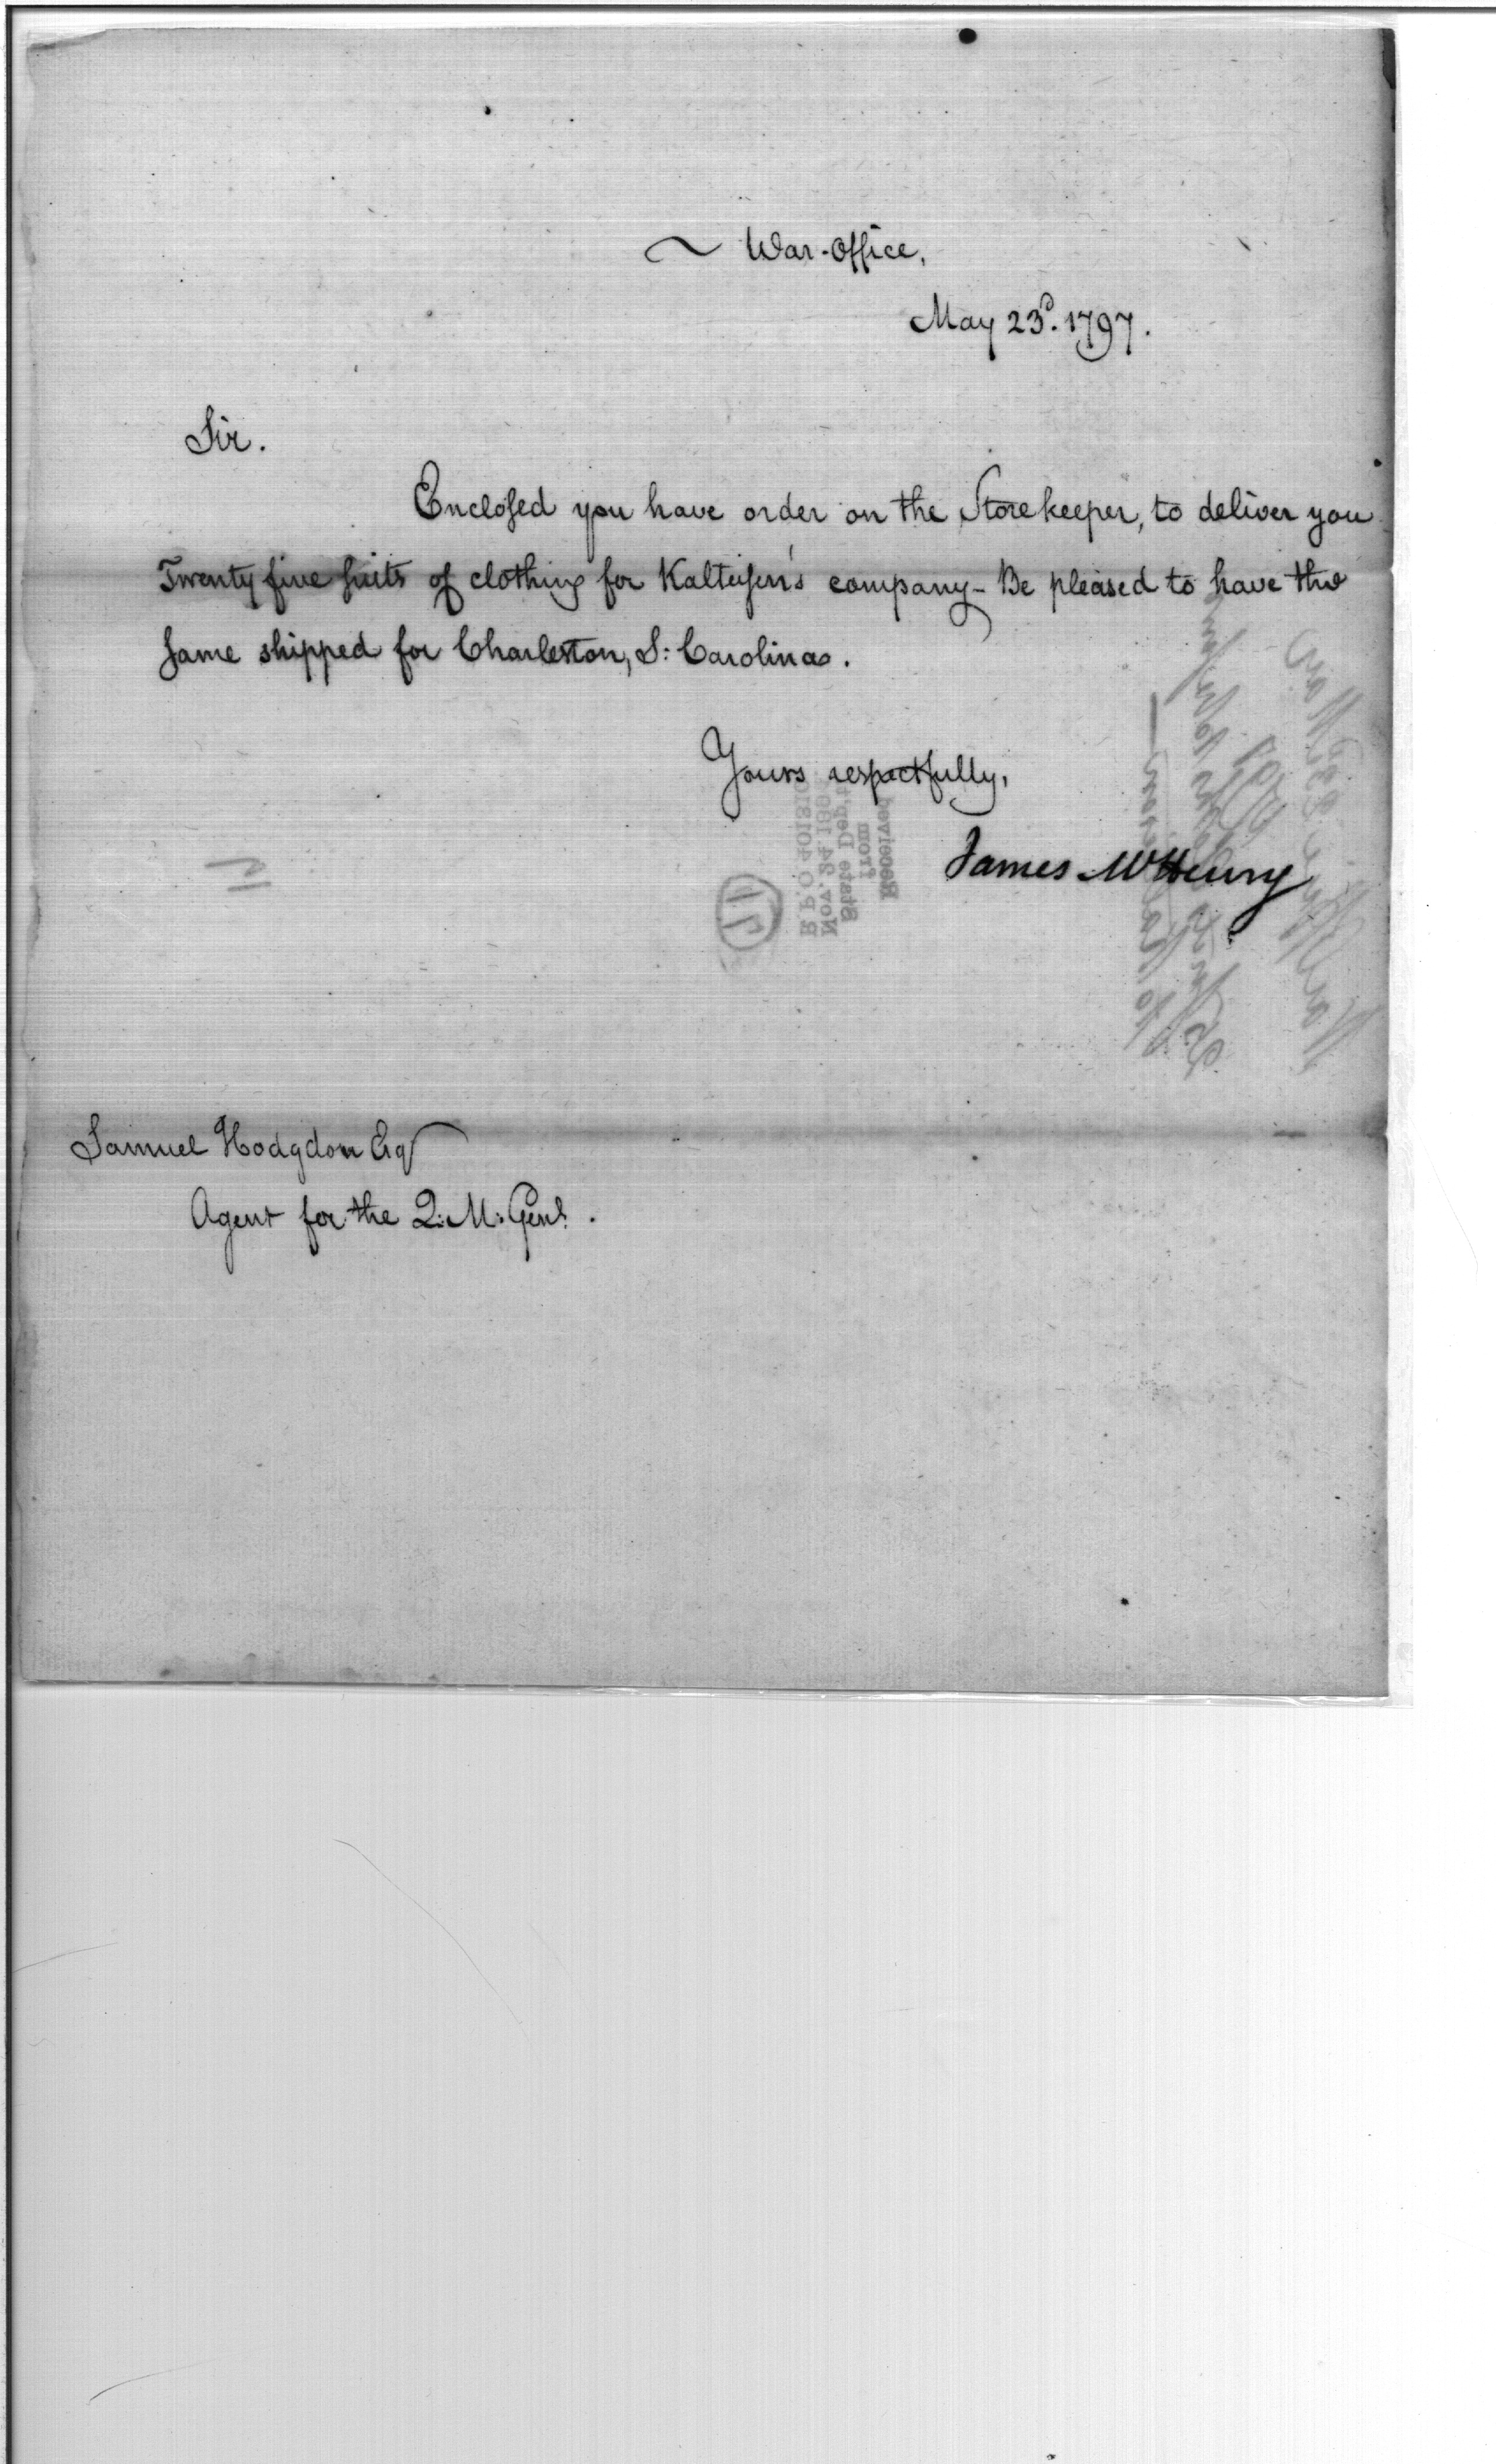 ~ War-Office,
May 23d. 1797.
Sir.
Enclosed you have order on the Storekeeper, to deliver you
Twenty five suits of clothing for Kalteisen's company - Be pleased to have the
same shipped for Charleston, S: Carolina.
Yours respectfully,
James McHenry
Received
from
State Dep't
Nov. 24, 189
R.P.O. 401810
71
Samuel Hodgdon Esqr
Agent for the Q: M: Genl.